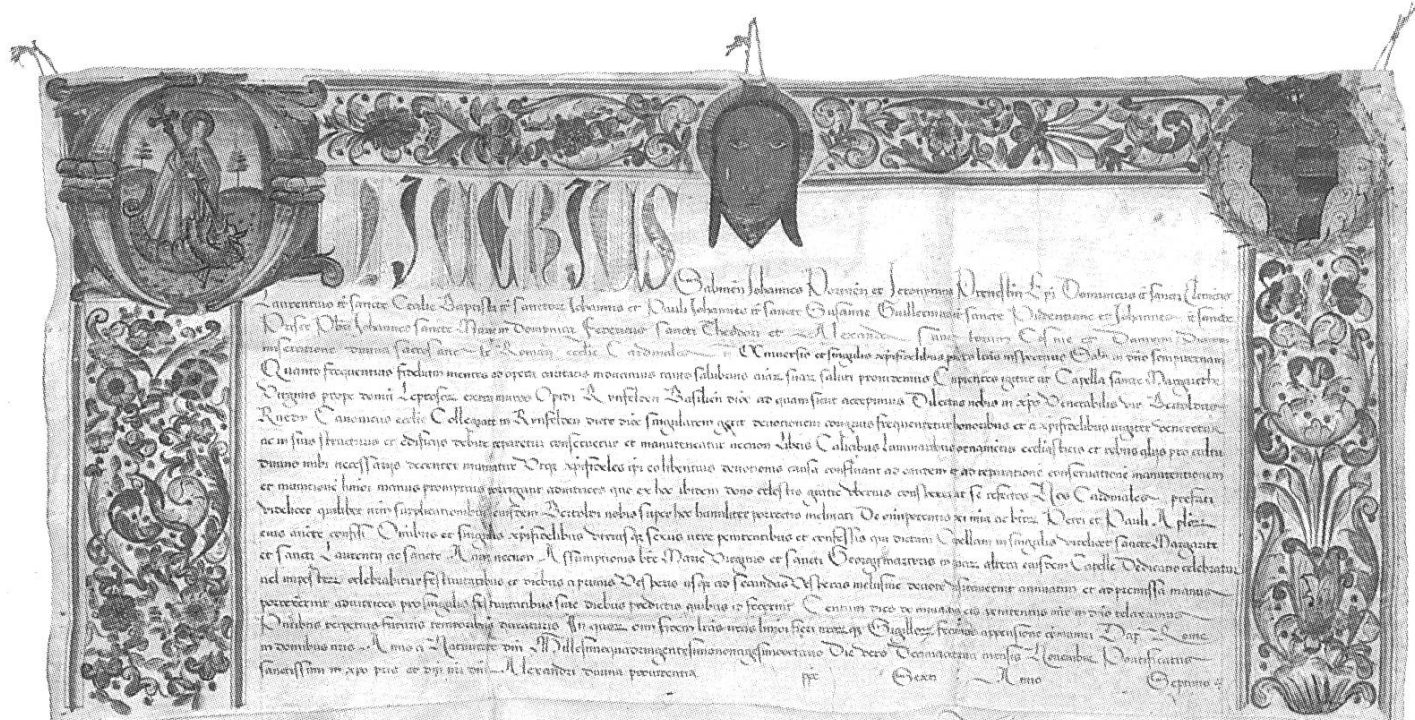 OLIVERIUS
Sabinen Johannes Portuen et Jeronymus Prenestin Epi Dominicus tt sancti Clementis
Laurentius tt sancte Cecilie Baptista tt sanctorz Johannis et Pauli Johannes tt sancte Susanne Guillermus tt sancte Pudentiane et Johannes tt sancte
Prisce Pbri Johannes sancte Marie in Domnica Federicus sancti Theodori et Alexander sanctorum Cosme et Damiani Diaconi
miseratione divina sacrosancte Roman ecclie Cardinales Universis et singulis xpifidelibus pntes lras inspecturis Salt in dno sempiternam
Quanto frequentius fidelium mentes ad opera caritatis monemus tanto salubrius aiarz suarz saluti providemus Cupientes igitur ut Capella sancte Margarethe
Virginis prope domum Leprosorz extra muros Opidi Rynfelden Basilien dioc ad quam sicut accepimus Dilectus nobis in xpo Venerabilis vir Bertoldus
Canonicus ecclie Collegiate in Rynfelden dicte dioc singularem gerit devotionem congruis frequentetur honoribus et a xpifidelibus iugiter veneretur
ac in suis structuris et edificijs debite reparetur conservetur et manuteneatur necnon Libris Calicibus Luminaribus ornamentis ecclesiasticis et rebus alijs pro cultu
divino inibi necessarijs decenter muniatur Utqz xpifideles ipi eo libentius devotionis causa confluant ad eandem et ad reparatione conservatione manutentionem
et munitione hmoi manus promptius porrigant adiutrices quo ex hoc ibidem dono celestis gratie uberius conspexerint se refectos Nos Cardinales prefati
videlicet quilibet nrm supplicationibus eiusdem Bertoldi nobis super hoc humiliter porrectis inclinati De omnipotentis dei mia ac btorz Petri et Pauli Aplorz
eius aucte confisi Omnibus et singulis xpifidelibus utriusqz sexus vere penitentibus et confessis qui dictam Capellam in singulis videlicet sancte Margarete
et sancti Laurentij ac sancte Anne necnon Assumptionis bte Marie Virginis et sancti Georgij martiris in quarz altera eiusdem Capelle Dedicatio celebratur
vel in posterz celebrabitur festivitatibus et diebus a primis Vesperis usqz ad secundas Vesperas inclusive devote visitaverint annuatim et ad premissa manus
porrexerint adiutrices pro singulis festivitatibus sive diebus predictis quibus id fecerint Centum dies de iniunctis eis penitentijs mir in dno relaxamus
Pntibus perpetuis futuris temporibus duraturis In quorz omi fidem lras nras hmoi fieri nrorqz Sigillorz fecimus appensione comuniri Dat Rome
in domibus nris Anno a Nativitate dni Millesimoquadringentesimononagesimooctavo Die vero mensis Novembr Pontificatus
sanctissimi in xpo pris et dni nri dni Alexandri divina providentia ppe Sexti Anno Septimo